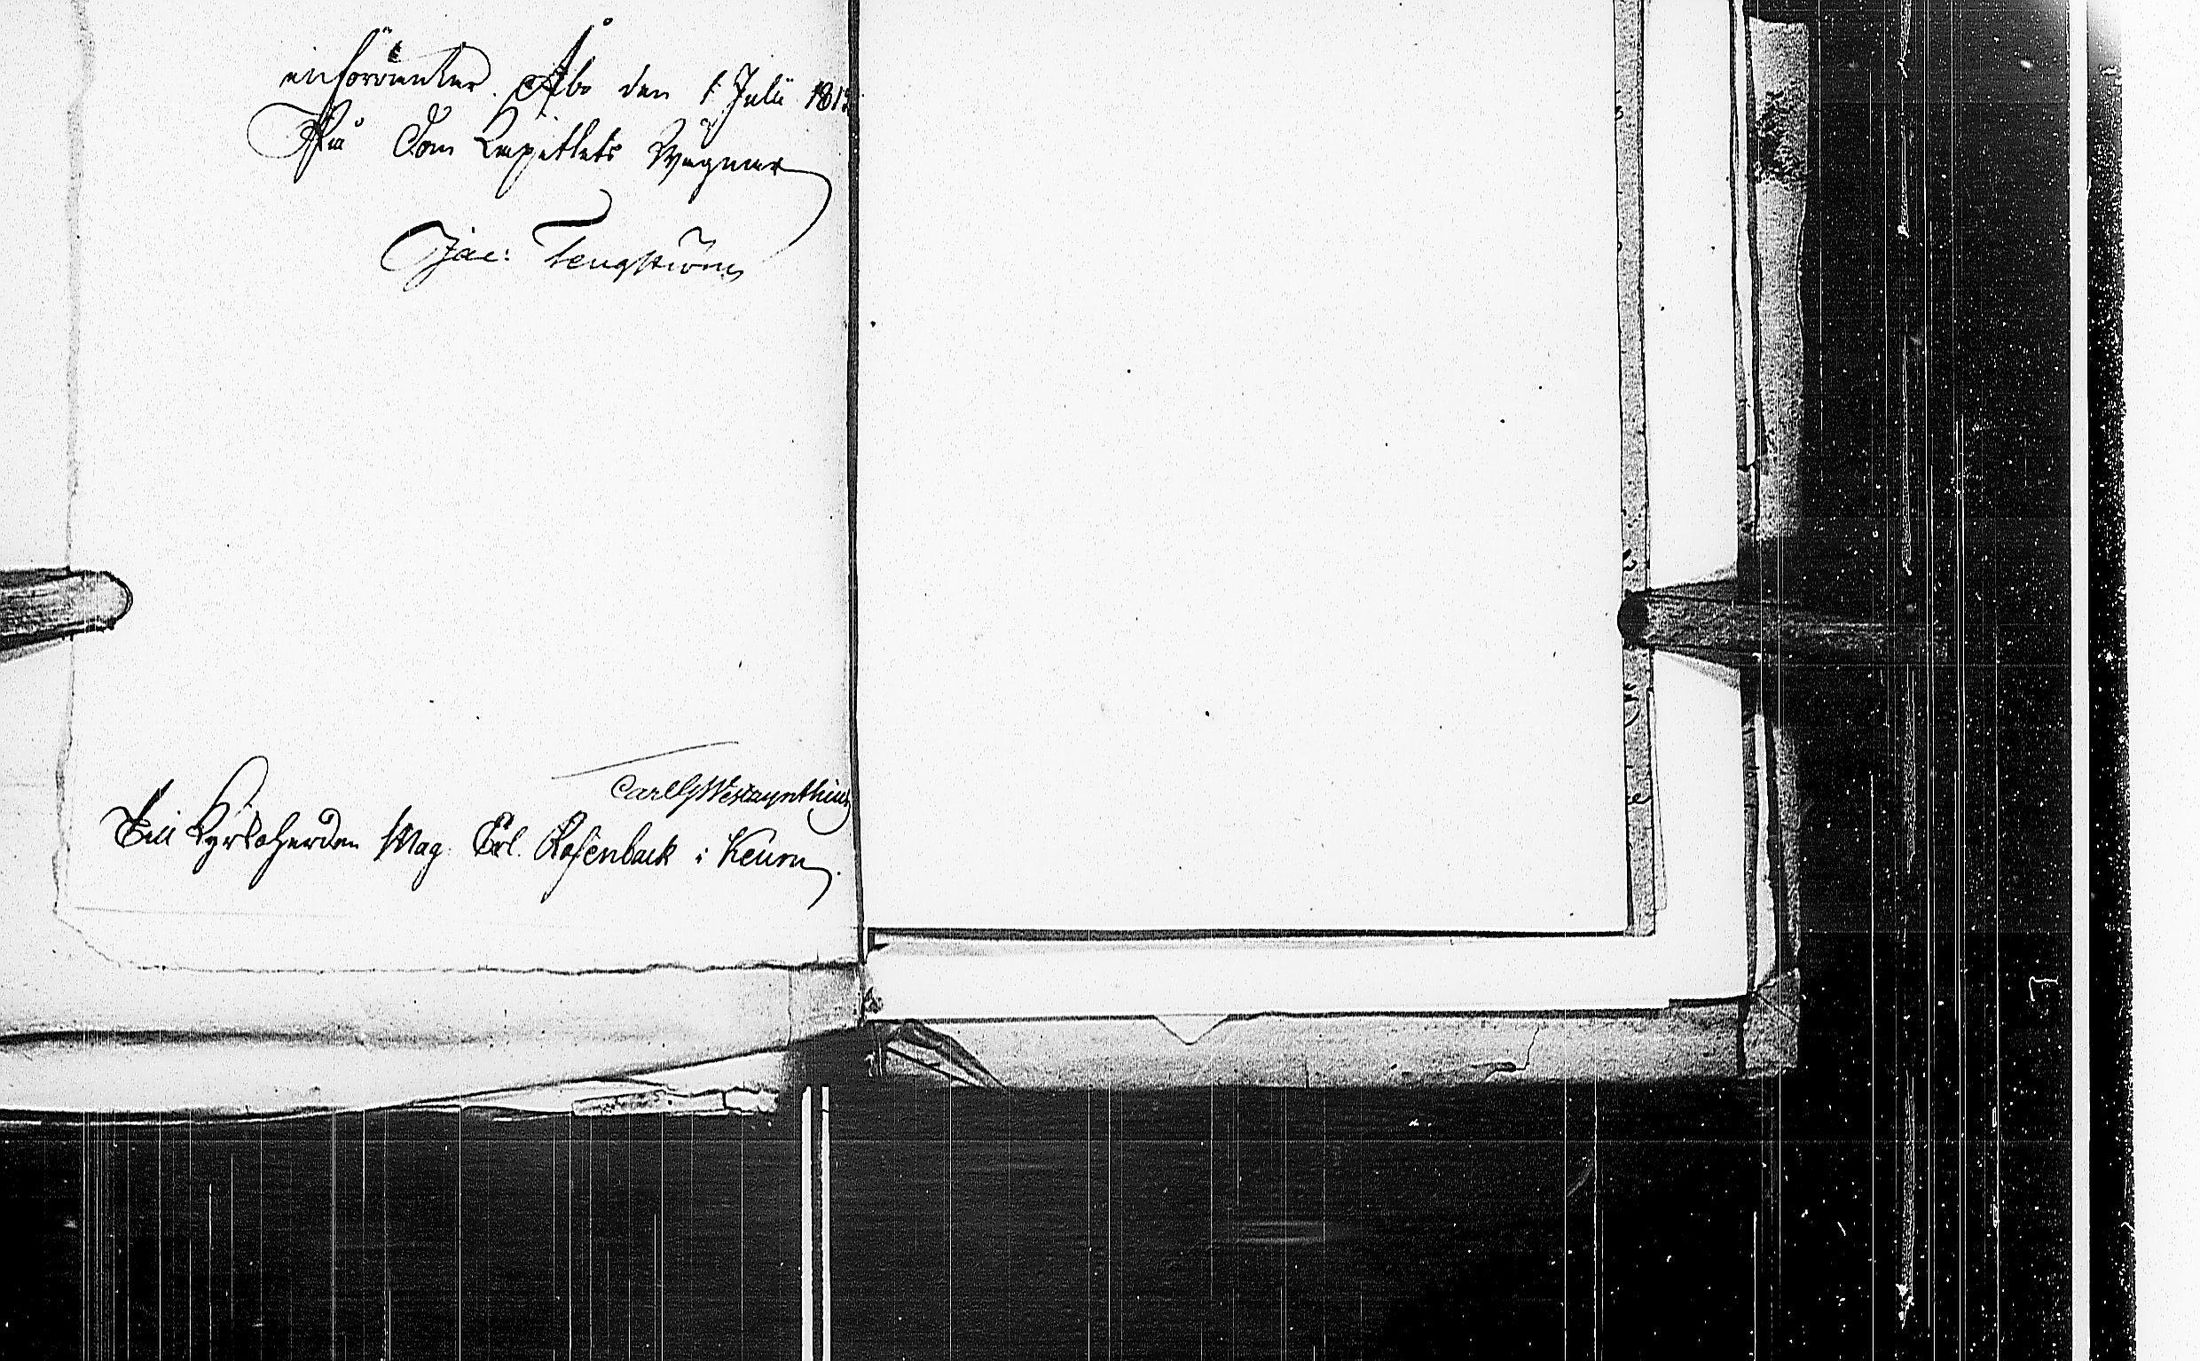 införväntar. Åbo den 1 Julii 181
På Dom Capitlets Wägnar
Jac: Tengström
Carl G Westzynthius
Till Kyrkoherden Mag. Erl. Rosenback i Keuru.